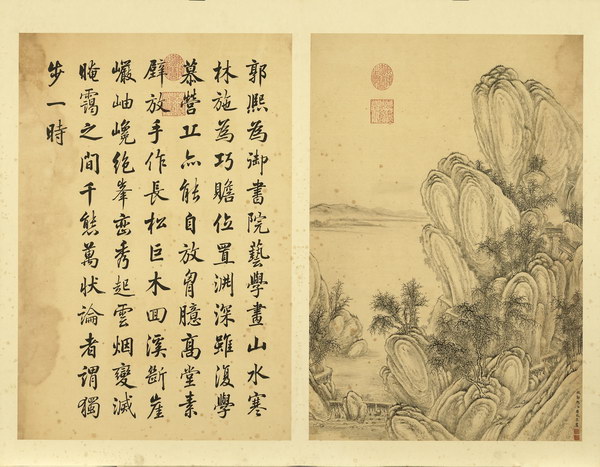 郭熙為御書院藝學畫山水寒
林施為巧贍位置淵深雖復學
慕營丘亦能自放胷臆高堂素
壁放手作長松巨木回溪斷崖
巖岫巉絶峯巒秀起雲烟變滅
晻靄之間千態萬狀論者謂獨
步一時